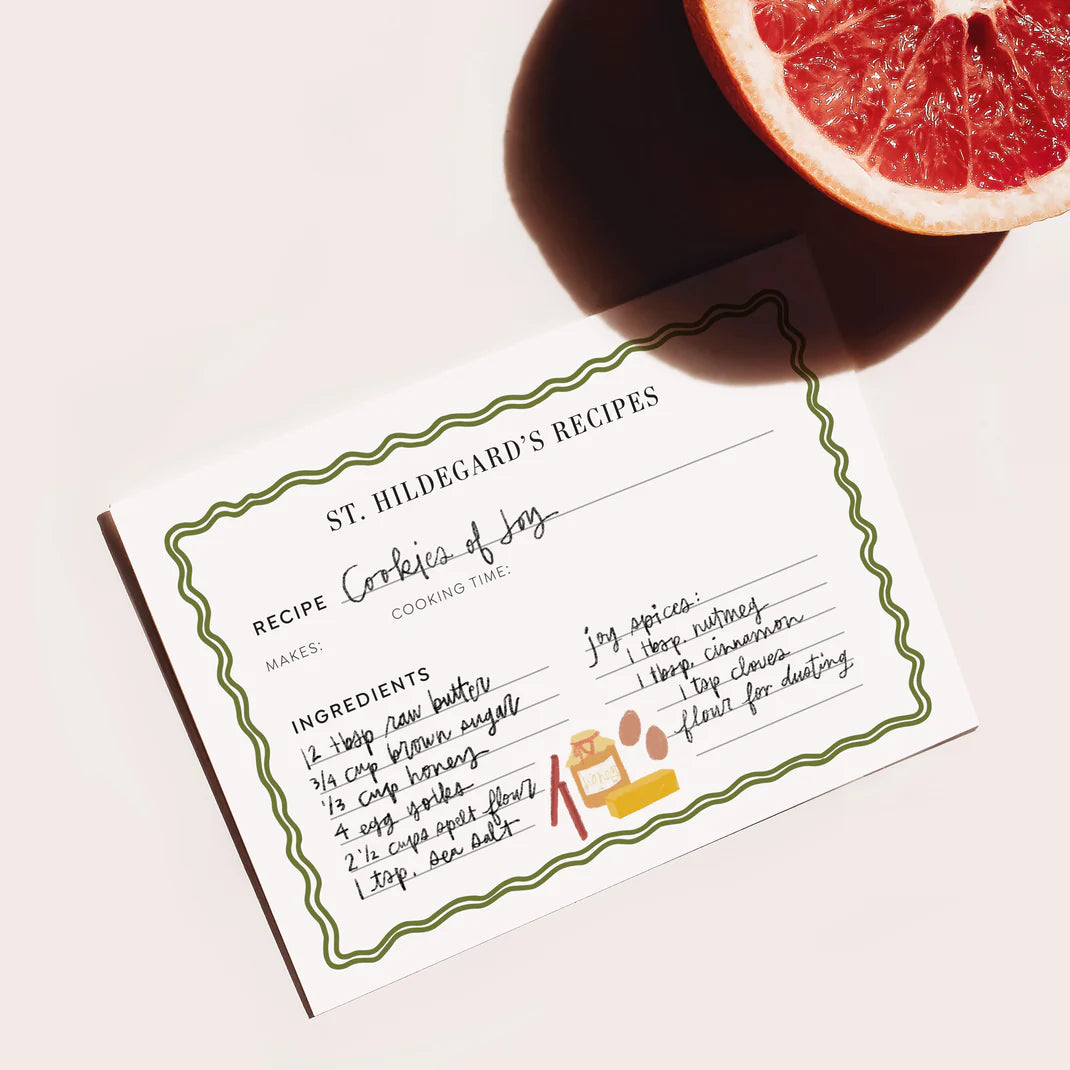 ST. HILDEGARD'S RECIPES
RECIPE Cookies of Joy
MAKES: COOKING TIME:
INGREDIENTS
12 tbsp raw butter
3/4 cup brown sugar
1/3 cup honey
4 egg yolks
2 1/2 cups spelt flour
1 tsp. sea salt
joy spices:
1 tbsp. nutmeg
1 tbsp. cinnamon
1 tsp cloves
flour for dusting
honey